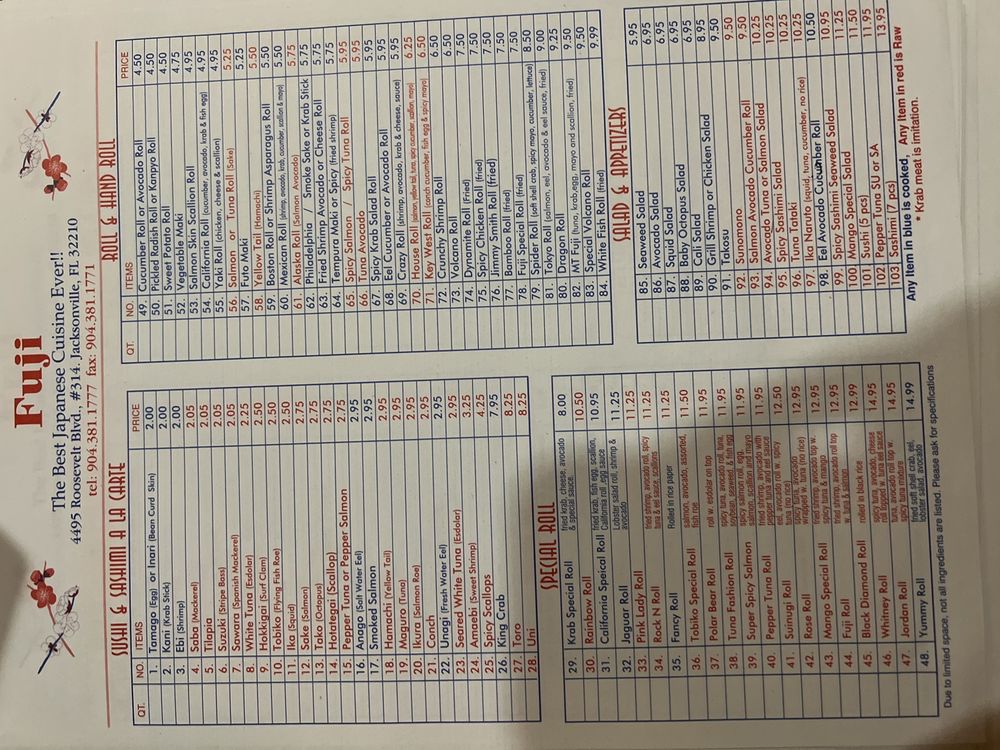 Fuji
The Best Japanese Cuisine Ever!!
4495 Roosevelt Blvd., #314. Jacksonville, FL 32210
tel: 904.381.1777 fax: 904.381.1771
SUSHI & SASHIMI A LA CARTE
QT. NO. ITEMS PRICE
1. Tamago (Egg) or Inari (Bean Curd Skin) 2.00
2. Kani (Krab Stick) 2.00
3. Ebi (Shrimp) 2.00
4. Saba (Mackerel) 2.05
5. Tilapia 2.05
6. Suzuki (Stripe Bass) 2.05
7. Sawara (Spanish Mackerel) 2.05
8. White Tuna (Esdolar) 2.25
9. Hokkigai (Surf Clam) 2.50
10. Tobiko (Flying Fish Roe) 2.50
11. Ika (Squid) 2.50
12. Sake (Salmon) 2.75
13. Tako (Octopus) 2.75
14. Hotategai (Scallop) 2.75
15. Pepper Tuna or Pepper Salmon 2.75
16. Anago (Salt Water Eel) 2.95
17. Smoked Salmon 2.95
18. Hamachi (Yellow Tail) 2.95
19. Maguro (Tuna) 2.95
20. Ikura (Salmon Roe) 2.95
21. Conch 2.95
22. Unagi (Fresh Water Eel) 2.95
23. Seared White Tuna (Esdolar) 2.95
24. Amaebi (Sweet Shrimp) 3.25
25. Spicy Scallops 4.25
26. King Crab 7.95
27. Toro 8.25
28. Uni 8.25
SPECIAL ROLL
29. Krab Special Roll fried krab, cheese, avocado & special sauce 8.00
30. Rainbow Roll 10.50
31. California Speical Roll fried krab, fish egg, scallion, California roll, egg sauce 10.95
32. Jaguar Roll Lobster salad roll, shrimp & avocado 11.25
33. Pink Lady Roll 11.25
34. Rock N Roll fried shrimp, avocado roll, spicy tuna & eel sauce, scallions 11.25
35. Fancy Roll Rolled in rice paper 11.25
36. Tobiko Special Roll salmon, avocado, assorted, fish roe 11.50
37. Polar Bear Roll roll w. esdolar on top 11.95
38. Tuna Fashion Roll spicy tuna, avocado roll, tuna, soybean, seaweed, & fish egg 11.95
39. Super Spicy Salmon spicy salmon roll, egg, salmon, scallion and mayo 11.95
40. Pepper Tuna Roll fried shrimp, avocado with pepper tuna and eel sauce 11.95
41. Suinugi Roll eel, avocado roll w. spicy tuna (no rice) 12.50
42. Rose Roll spicy tuna, avocado wrapped w. tuna (no rice) 12.95
43. Mango Special Roll fried shrimp, avocado top w. spicy tuna & mango 12.95
44. Fuji Roll fried shrimp, avocado roll top w. tuna & salmon 12.95
45. Black Diamond Roll rolled in black rice 12.99
46. Whitney Roll spicy tuna, avocado, cheese roll topped w. tuna eel sauce 14.95
47. Jordan Roll tuna, avocado roll top w. spicy tuna mixture 14.95
48. Yummy Roll fried soft shell crab, eel, lobster salad, avocado 14.99
Due to limited space, not all ingredients are listed. Please ask for specifications
ROLL & HAND ROLL
QT. NO. ITEMS PRICE
49. Cucumber Roll or Avocado Roll 4.50
50. Pickled Radish Roll or Kanpyo Roll 4.50
51. Sweet Potato Roll 4.50
52. Vegetable Maki 4.75
53. Salmon Skin Scallion Roll 4.95
54. California Roll (cucumber, avocado, krab & fish egg) 4.95
55. Yaki Roll (chicken, cheese & scallion) 4.95
56. Salmon or Tuna Roll (Sake) 5.25
57. Futo Maki 5.25
58. Yellow Tail (Hamachi) 5.50
59. Boston Roll or Shrimp Asparagus Roll 5.50
60. Mexican Roll (shrimp, avocado, krab, cucumber, scallion & mayo) 5.50
61. Alaska Roll (Salmon Avocado) 5.75
62. Philadelphia / Snake Sake or Krab Stick 5.75
63. Fried Shrimp Avocado or Cheese Roll 5.75
64. Tempura Maki or Spicy (fried shrimp) 5.75
65. Spicy Salmon / Spicy Tuna Roll 5.95
66. Tuna Avocado 5.95
67. Spicy Krab Salad Roll 5.95
68. Eel Cucumber or Avocado Roll 5.95
69. Crazy Roll (shrimp, avocado, krab & cheese, sauce) 5.95
70. House Roll (salmon, yellow tail, tuna, spicy cucumber, scallion, mayo) 6.25
71. Key West Roll (conch cucumber, fish egg & spicy mayo) 6.50
72. Crunchy Shrimp Roll 6.50
73. Volcano Roll 6.50
74. Dynamite Roll (Fried) 7.50
75. Spicy Chicken Roll (fried) 7.50
76. Jimmy Smith Roll (fried) 7.50
77. Bamboo Roll (fried) 7.50
78. Fuji Special Roll (fried) 7.50
79. Spider Roll (soft shell crab, spicy mayo, cucumber, lettuce) 8.50
80. Dragon Roll 9.00
81. Tokyo Roll (salmon, eel, avocado & eel sauce, fried) 9.25
82. MT Fuji (tuna, krab, egg, mayo and scallion, fried) 9.50
83. Special Volcano Roll 9.50
84. White Fish Roll (fried) 9.99
SALAD & APPETIZERS
85. Seaweed Salad 5.95
86. Avocado Salad 6.95
87. Squid Salad 6.95
88. Baby Octopus Salad 6.95
89. Cali Salad 6.95
90. Grill Shrimp or Chicken Salad 8.95
91. Takosu 9.50
92. Sunomono 9.50
93. Salmon Avocado Cucumber Roll 9.50
94. Avocado Tuna or Salmon Salad 10.25
95. Spicy Sashimi Salad 10.25
96. Tuna Tataki 10.25
97. Ika Naruto (squid, tuna, cucumber, no rice) 10.25
98. Eel Avocado Cucumber Roll 10.50
99. Spicy Sashimi Seaweed Salad 10.95
100. Mango Special Salad 11.25
101. Sushi (5 pcs) 11.50
102. Pepper Tuna SU or SA 11.95
103. Sashimi (7 pcs) 13.95
Any Item in blue is cooked, Any Item in red is Raw
* Krab meat is imitation.